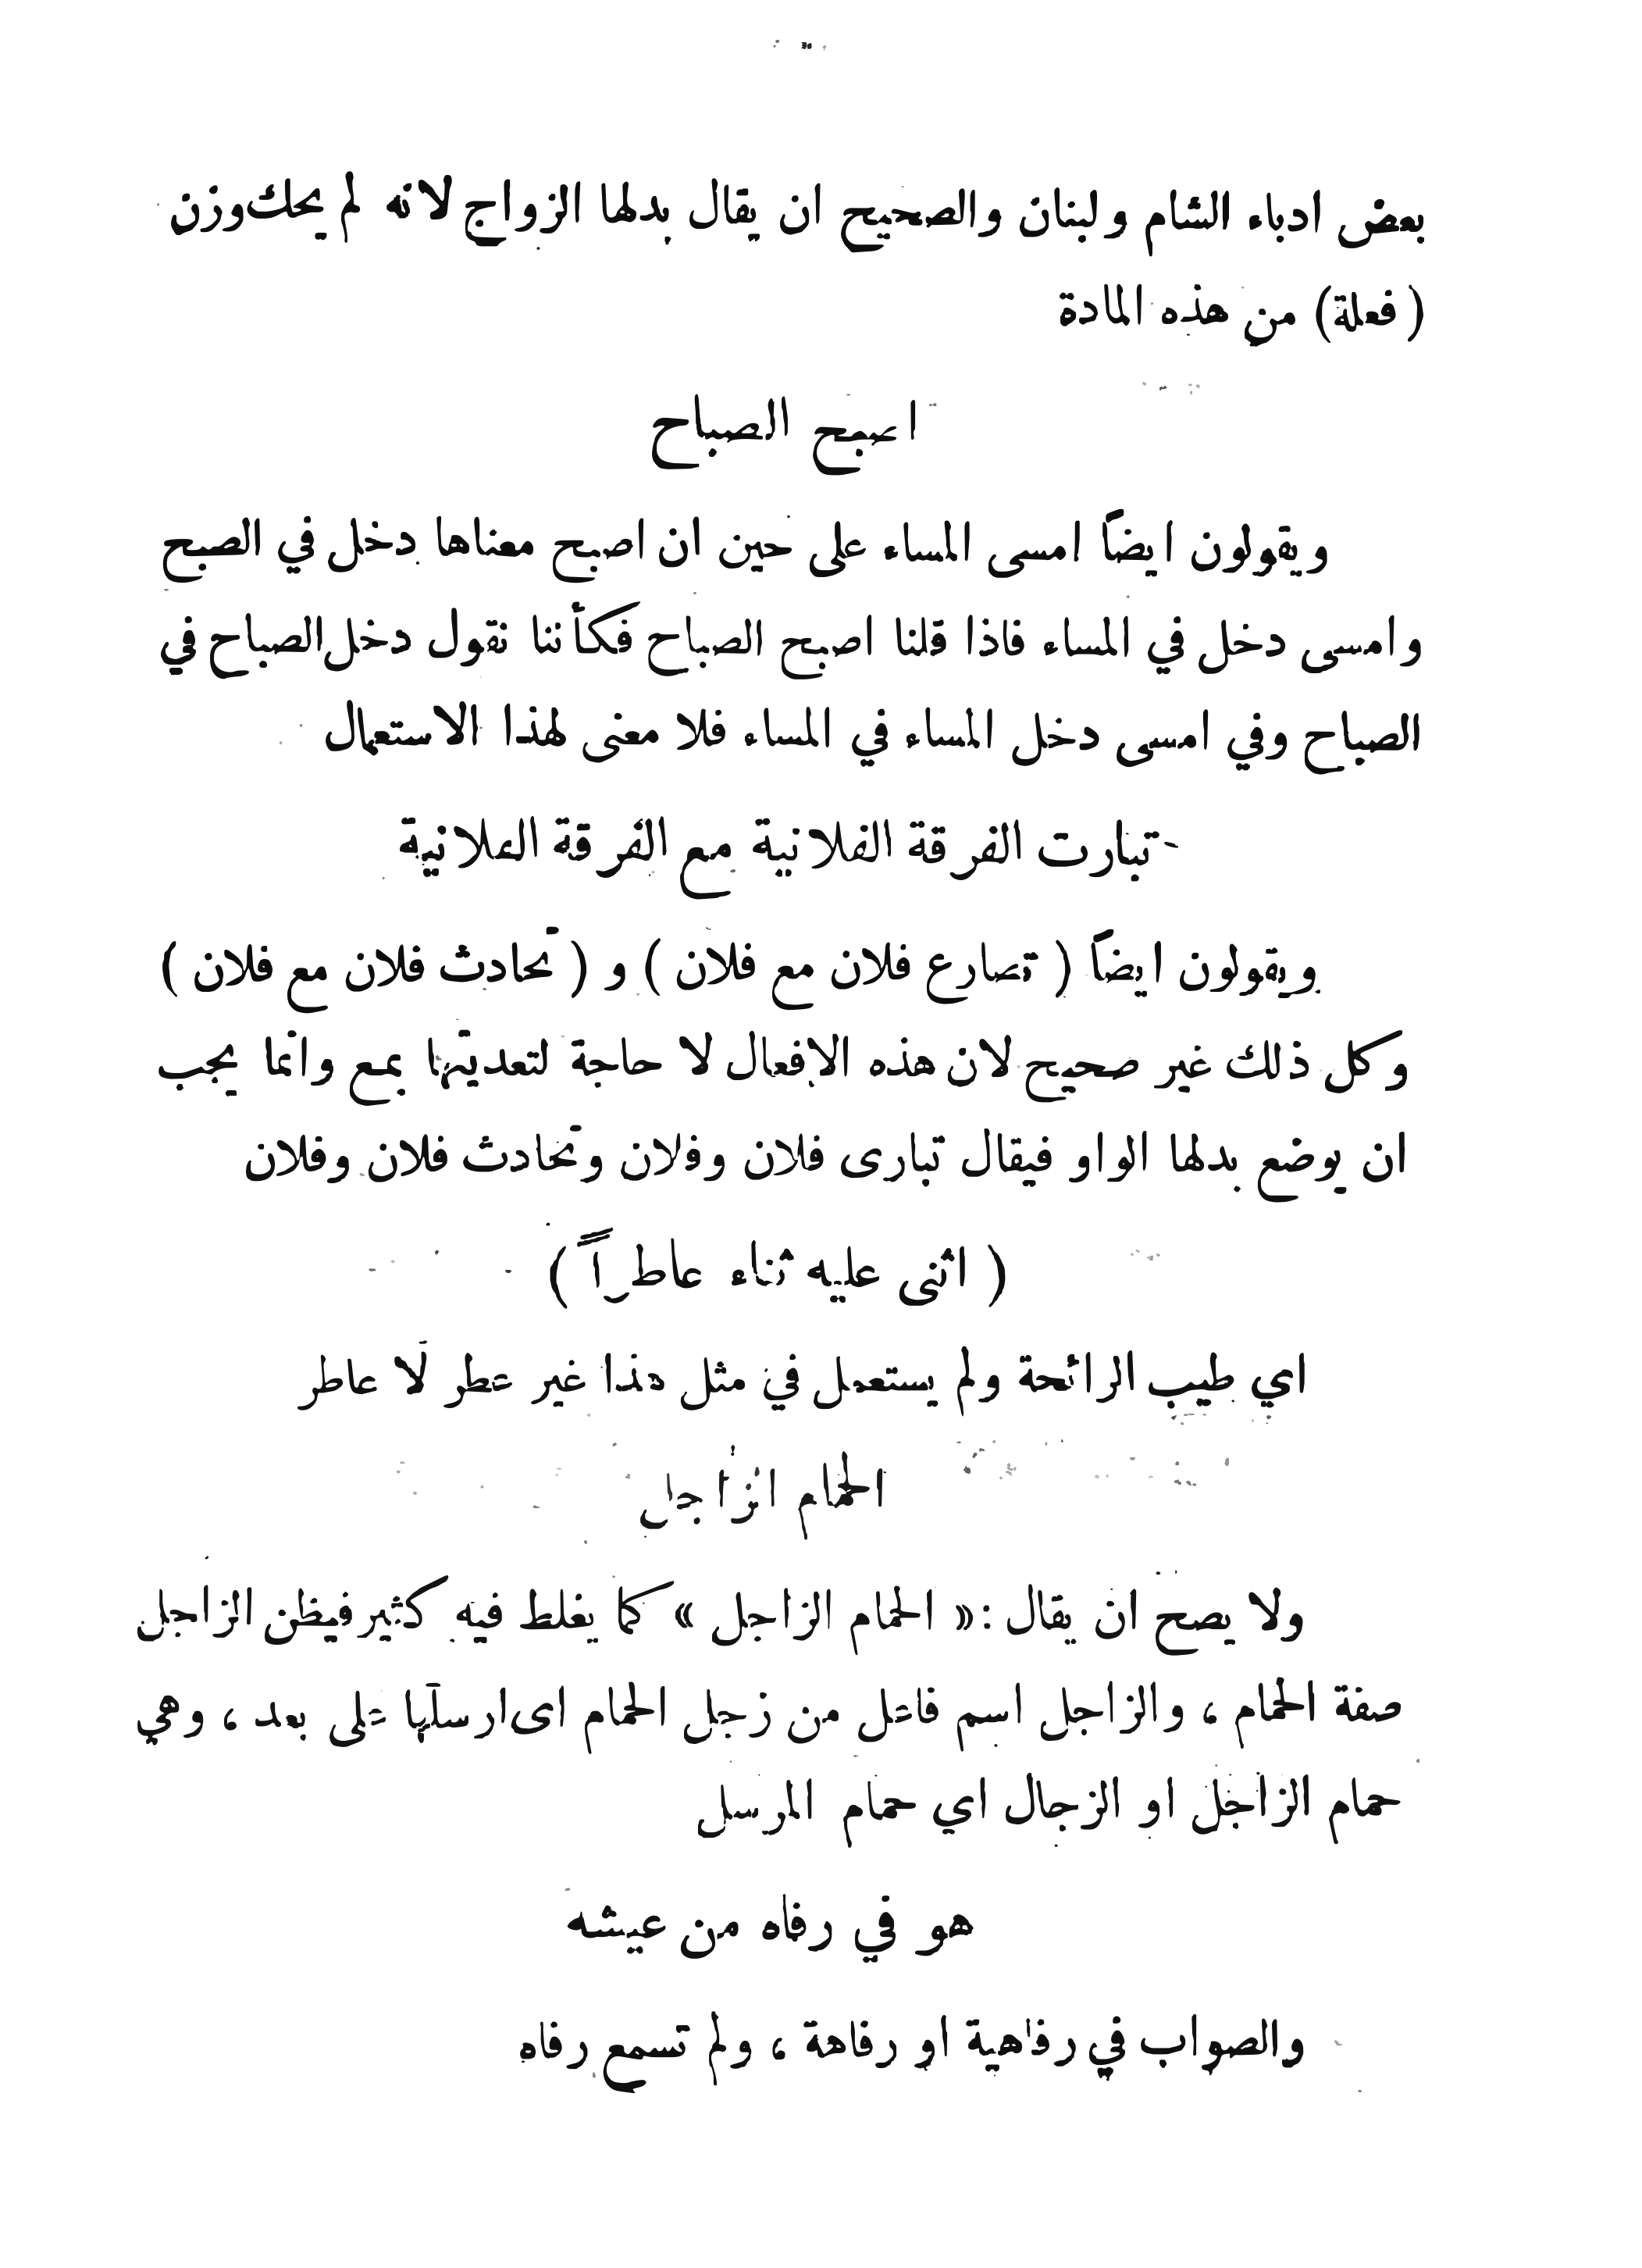 بعض ادباء الشام ولبنان والصحيح ان يقال بدلها الزواج لانه لم يحك وزن
( فعلة ) من هذه المادة
اصبح الصباح
ويقولون ايضاً امسى المساء على حين ان اصبح معناها دخل في الصبح
وامسى دخل في المساء فاذا قلنا اصبح الصباح فكأننا نقول دخل الصباح في
الصباح وفي امسى دخل المساء في المساء فلا معنى لهذا الاستعمال
تبارت الفرقة الفلانية مع الفرقة الفلانية
ويقولون ايضاً ( تصارع فلان مع فلان ) و ( تحادث فلان مع فلان )
وكل ذلك غير صحيح لان هذه الافعال لا حاجة لتعديتها بمع وانما يجب
ان يوضع بدلها الواو فيقال تبارى فلان وفلان وتحادث فلان وفلان
( اثنى عليه ثناء عاطراً )
اي طيب الرائحة ولم يستعمل في مثل هذا غير عطر لا عاطر
الحمام الزاجل
ولا يصح ان يقال : « الحمام الزاجل » كما يغلط فيه كثير فيظن الزاجل
صفة الحمام ، والزاجل اسم فاعل من زجل الحمام اى ارسلها على بعد ، وهي
حمام الزاجل او الزجال اي حمام المرسل
هو في رفاه من عيشه
والصواب في رفاهية او رفاهة ، ولم تسمع رفاه